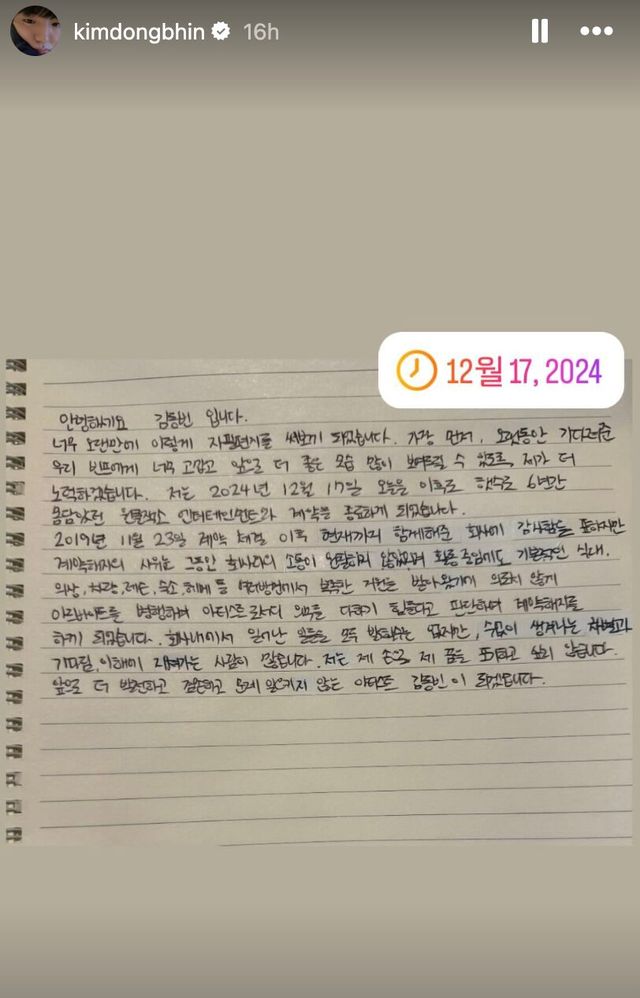 kimdongbhin 16h
12월 17, 2024
안녕하세요 김동빈 입니다.
너무 오랜만에 이렇게 자필편지를 써보기 되었습니다. 가장 먼저, 오랫동안 기다려준
우리 빈프에게 너무 고맙고 앞으로 더 좋은 모습 많이 보여드릴 수 있도록 제가 더
노력하겠습니다. 저는 2024년 12월 17일 오늘을 이후로 햇수로 6년만
몸담았던 엔터테인먼트와 계약을 종료하게 되었습니다.
2019년 11월 23일 계약 체결 이후 현재까지 함께해준 회사에 감사함을 표하지만
계약해지의 사유는 그동안 회사와의 소통이 원활하지 않았으며 활동중임에도 기본적인 식대,
의상, 차량, 레슨, 숙소, 헤메 등 여러방면에서 부족한 지원을 받아왔기에 의도치 않게
아르바이트를 병행하며 아티스트로서의 의무를 다하기 힘들다고 판단하여 계약해지를
하게 되었습니다. 회사내에서 일어난 일들을 모두 밝힐수는 없지만, 수없이 생겨나는 차별과
기다림, 이해에 지쳐가는 사람이 많습니다. 저는 제 손으로 제 꿈을 포기하고 싶지 않습니다.
앞으로 더 발전하고 겸손하고 문제 일으키지 않는 아티스트 김동빈이 되겠습니다.